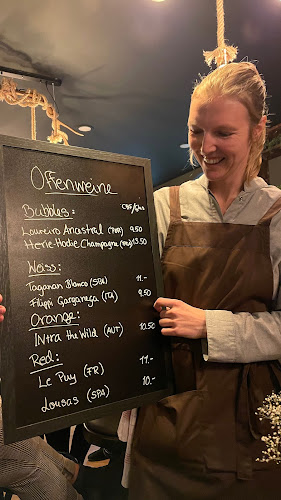 Offenweine
Bubbles: CHF/GLAS
Loureiro Ancestral (POR) 9.50
Herie-Hodie Champagne (FRA) 13.50
Weiss:
Taganan Blanco (SPA) 11.-
Filippi Garganega (ITA) 9.50
Orange:
Intra the Wild (AUT) 10.50
Red:
Le Puy (FR) 11.-
Lousas (SPA) 10.-